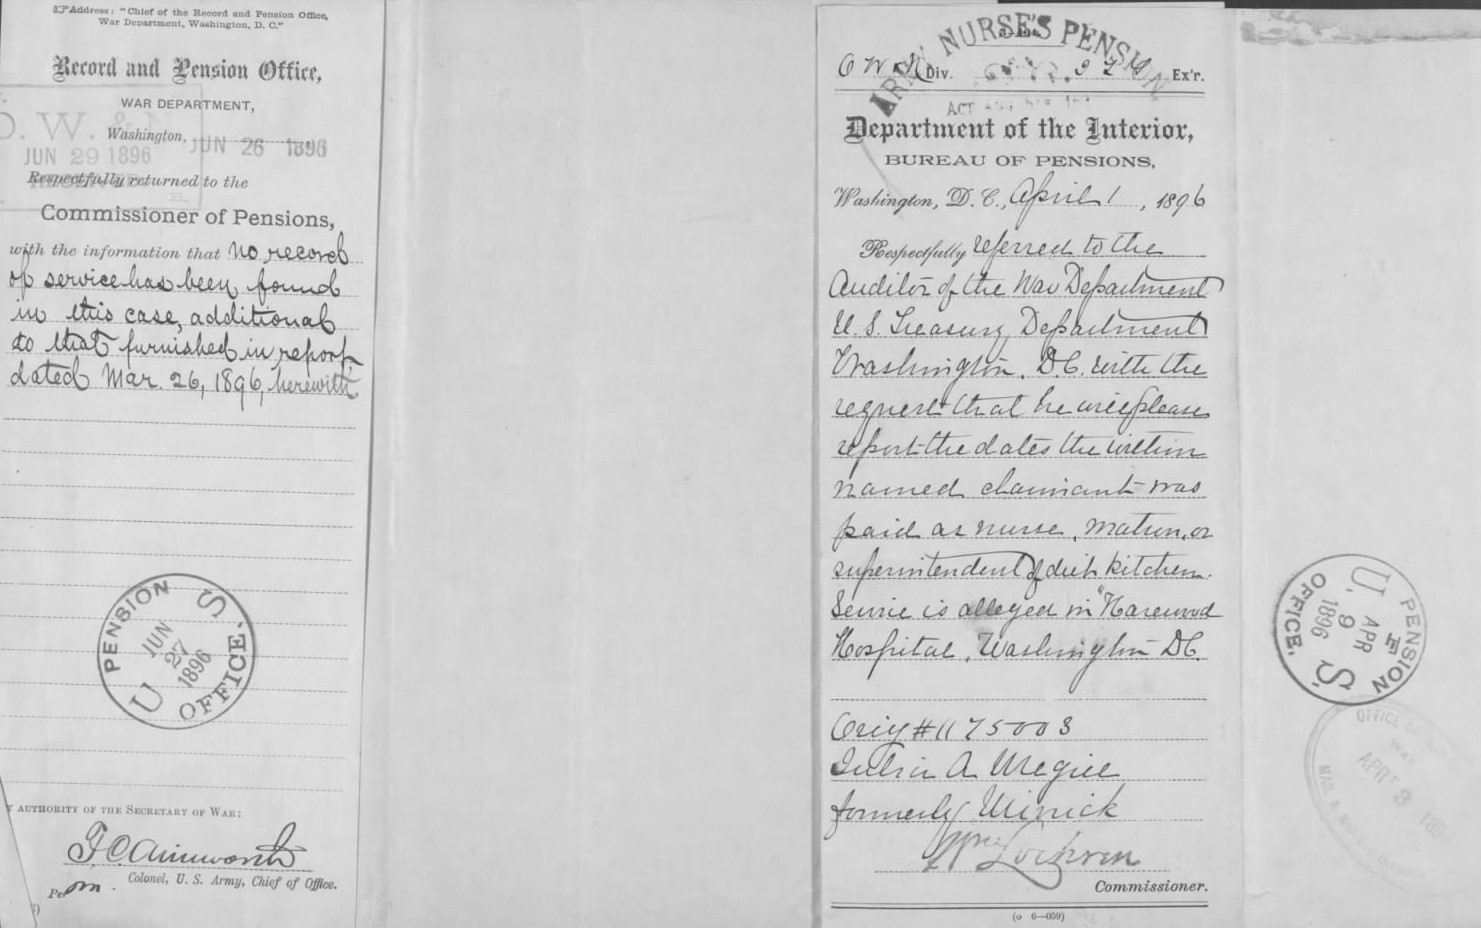 Address: "Chief of the Record and Pension Office,
War Department, Washington, D. C."
Record and Pension Office,
WAR DEPARTMENT,
Washington, JUN 26 1896
O. W. & N
JUN 29 1896
Respectfully returned to the
Commissioner of Pensions,
with the information that no record
of service has been found
in this case, additional
to that furnished in report
dated Mar. 26, 1896, herewith
U S PENSION OFFICE
JUN
27
1896
Y AUTHORITY OF THE SECRETARY OF WAR:
F. C. Ainsworth
Colonel, U. S. Army, Chief of Office.
Per
ARMY NURSE'S PENSION
O W & N Div. Ex'r.
ACT
Department of the Interior,
BUREAU OF PENSIONS,
Washington, D. C., April 1, 1896
Respectfully referred to the
Auditor of the War Department
U. S. Treasury Department
Washington. D.C. with the
request that he will please
report the dates the within
named claimant was
paid as nurse, matron, or
superintendent of diet kitchen.
Service is alleged in "Harewood
Hospital, Washington D.C.
Orig # 1175003
Julia A
formerly Minick
Wm Lochren
Commissioner.
(o 6—059)
U. S. PENSION OFFICE.
APR
9
1896
OFFICE OF
WAR
APR 3
MAIL &